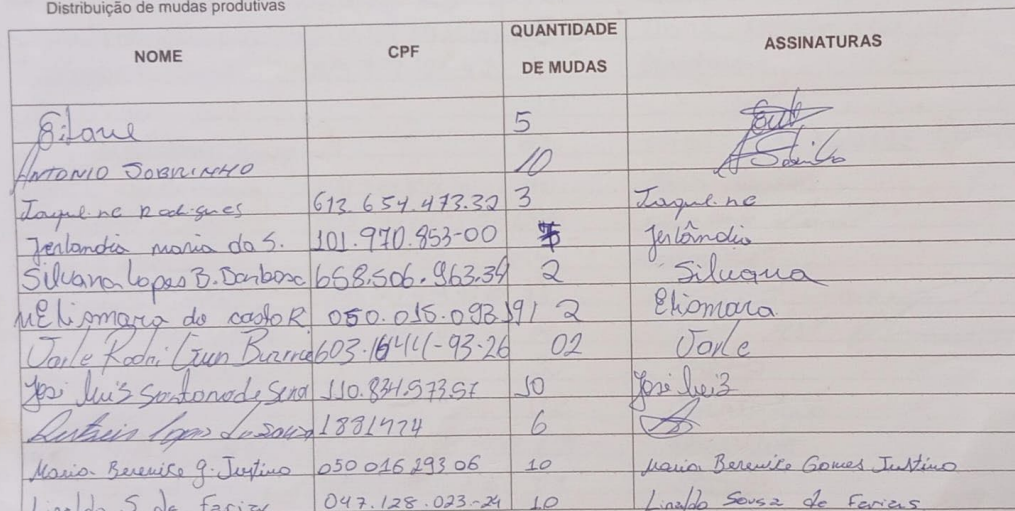 Distribuição de mudas produtivas
NOME CPF QUANTIDADE DE MUDAS ASSINATURAS
Gilane 5
ANTONIO SOBRINHO 10 A Sobrinho
Jaqueline Rodrigues 613.654.473.32 3 Jaqueline
Jerlandia maria da S. 101.970.853-00 Jerlândia
Silvana Lopes B. Barbosa 658.506.963.34 2 Silvana
Elismara do casto R 2 Elismara
02
José Luiz Santana de Sena 110.834.573.57 10 José Luiz
Lopes de Souza 1881474 6
Maria Berenice G. Justino 050 016 293 06 10 Maria Berenice Gomes Justino
Linaldo S de Farias 047.128.023-24 10 Linaldo Sousa de Farias